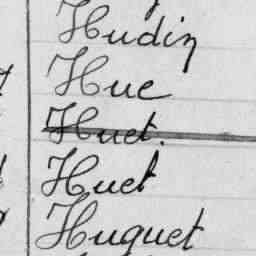 Hudin
Hue
Huet.
Huet
Huguet